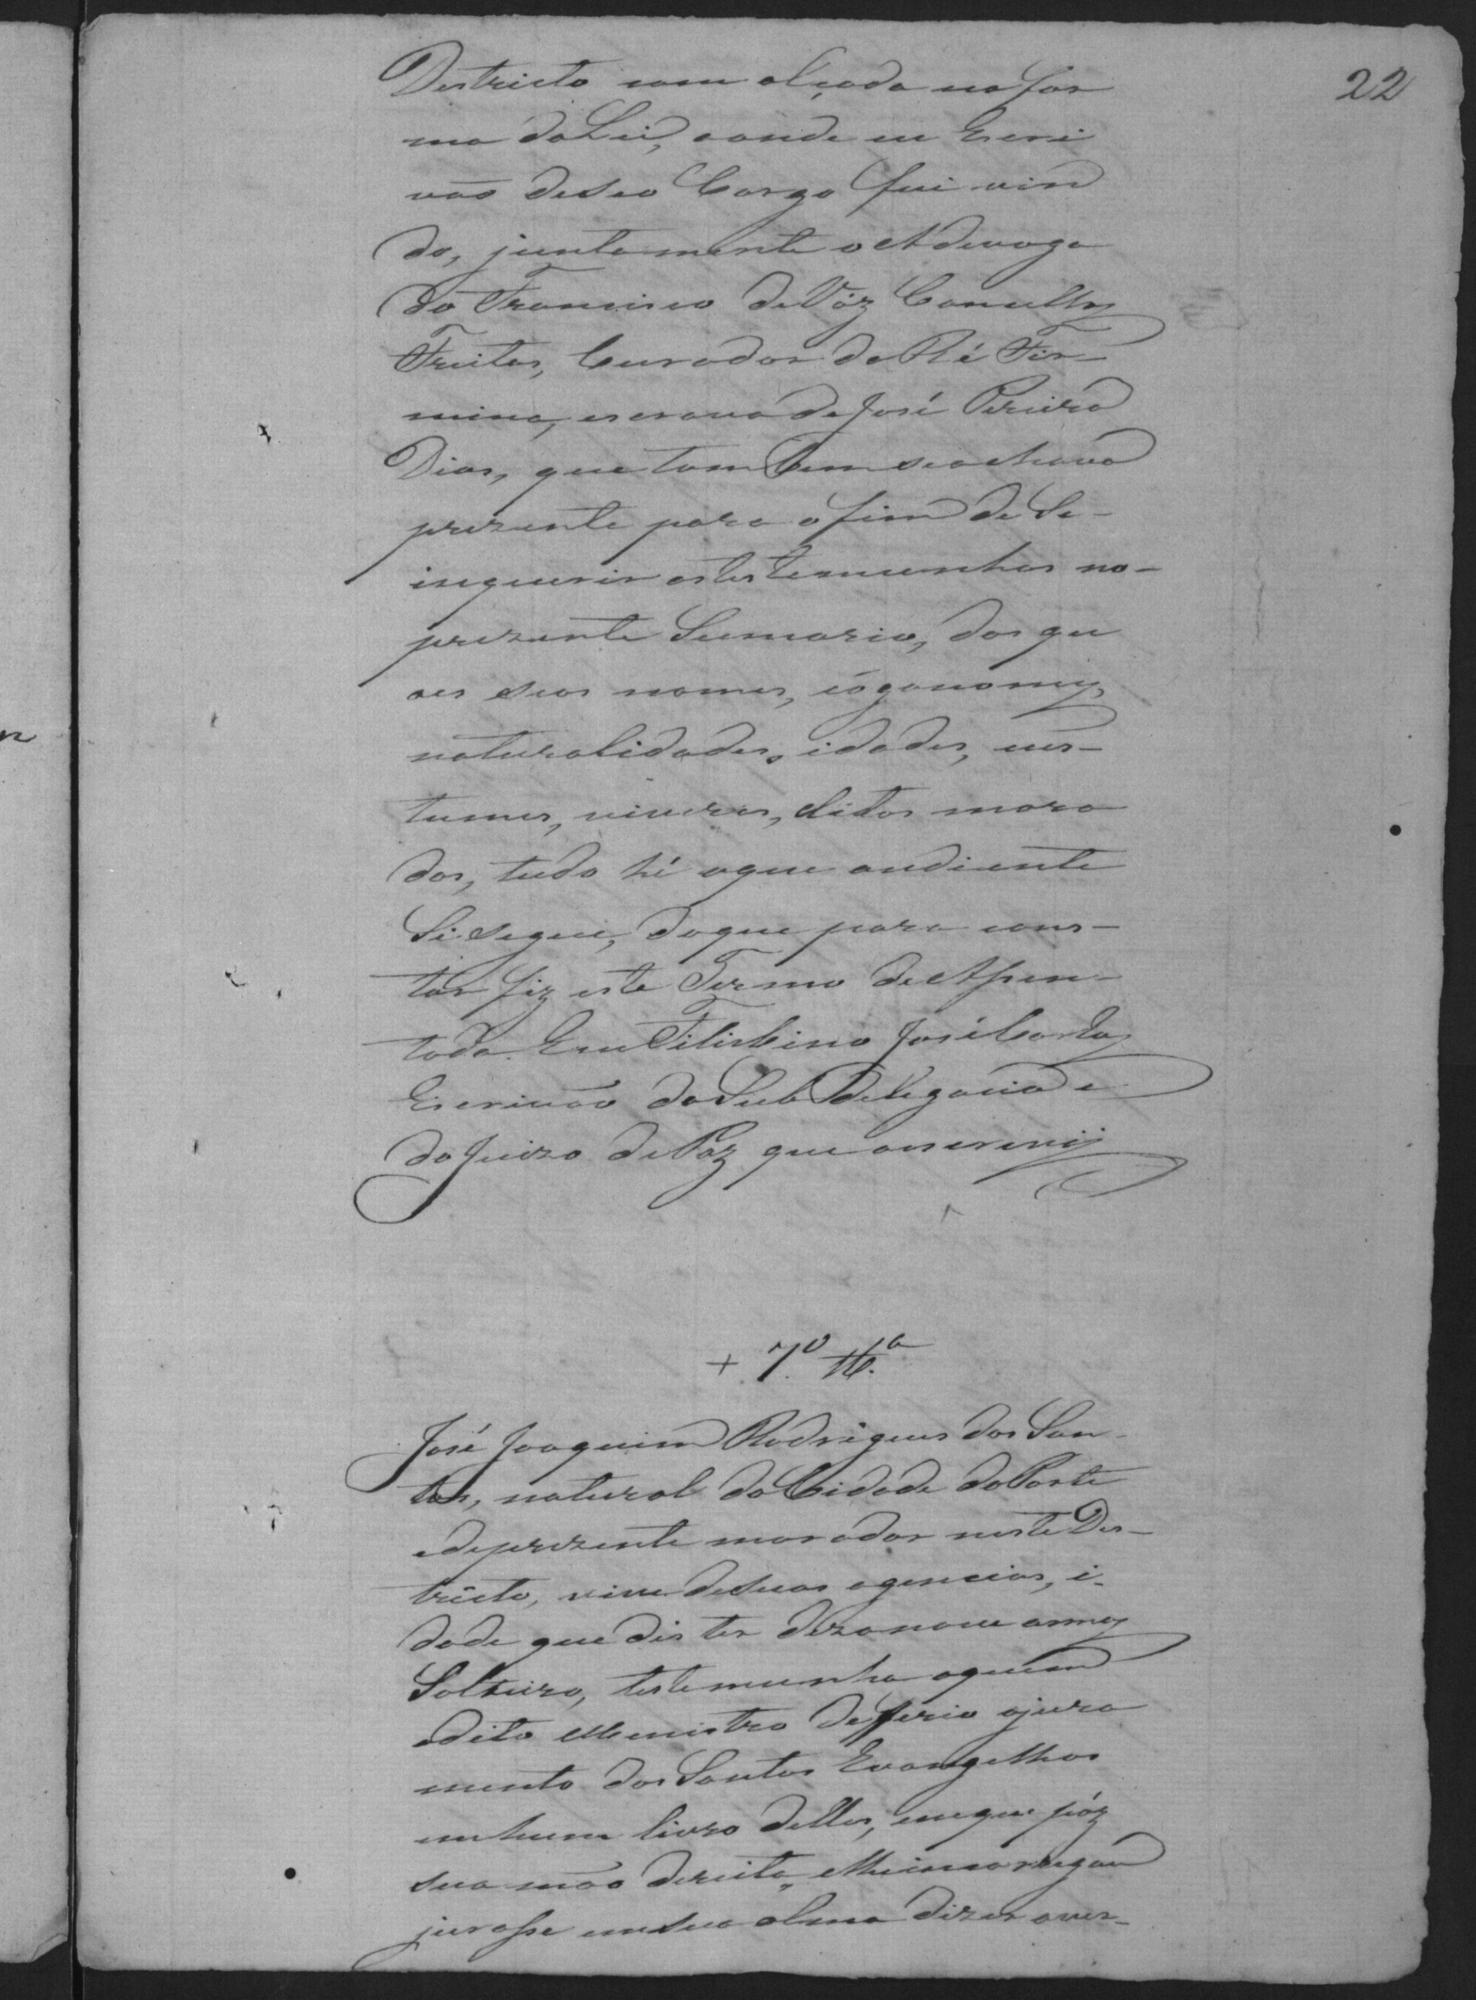 22
Destricto com alçada na for
ma da Lei, aonde eu Escri
vaõ deseo Cargo fui vin
do, juntamente o Advoga
do Francisco de Váz
Freitas, Curador da Ré Fir-
mina, escrava de José Pereira
Dias, que tambem seachava
prezente para o fim de Se-
inquerir as testemunhas no-
prezente Sumario, dos qu
aes seos nomes, cógonomes,
naturalidades, idades, cus-
tumes, viveres, ditos mora
dos, tudo hé oque aodiante
Sisegue, doque para cons-
tar fiz este Termo de Assen-
tada. Eu Filisbino José Cortes
Escrivaõ da Sub Delegacia e
do Juizo de Paz que oescrevij
+ 7º tt.ª
José Joaquim Rodrigues dos San-
tos, natural da Cidade do Porto
edeprezente morador neste Des-
tricto, vive desuas agencias, i-
dade que dis ter dezanove annos
Solteiro, testemunha aquem
odito Menistro defferio ojura
mento dos Santos Evangelhos
emhum livro delles, emque pôz
sua maõ direita,
jurasse emsua alma dizer aver-